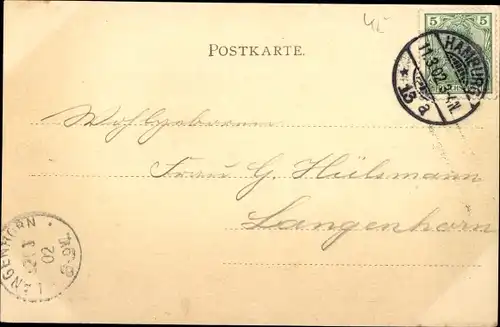 POSTKARTE.
5 5
HAMBURG
11.3.02.
* 13 a
Wohlgeboren
Frau G. Hülsmann
Langenhorn
LANGENHORN
02